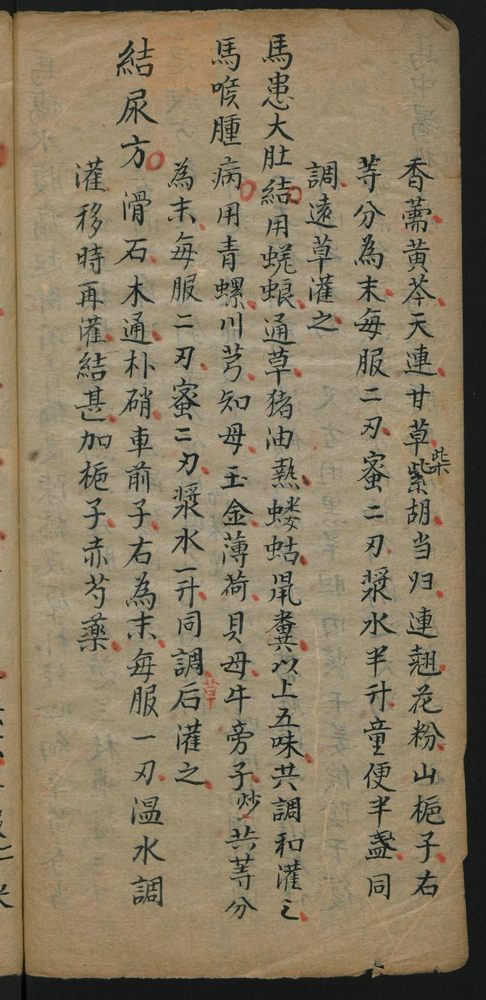 香薷黄芩天連甘草紫胡当归連翹花粉山梔子右
柴
等分為末每服二刃蜜二刃漿水半升童便半盞同
調遠草灌之
馬患大肚結用蜣蜋通草猪油熱蝼蛄鼠糞以上五味共調和灌之
馬喉腫病用青螺川芎知母玉金薄荷貝母牛旁子炒共等分
為末每服二刃蜜二刃漿水一升同調后灌之
草
結尿方滑石木通朴硝車前子右為末每服一刃温水調
灌移時再灌結甚加梔子赤芍藥